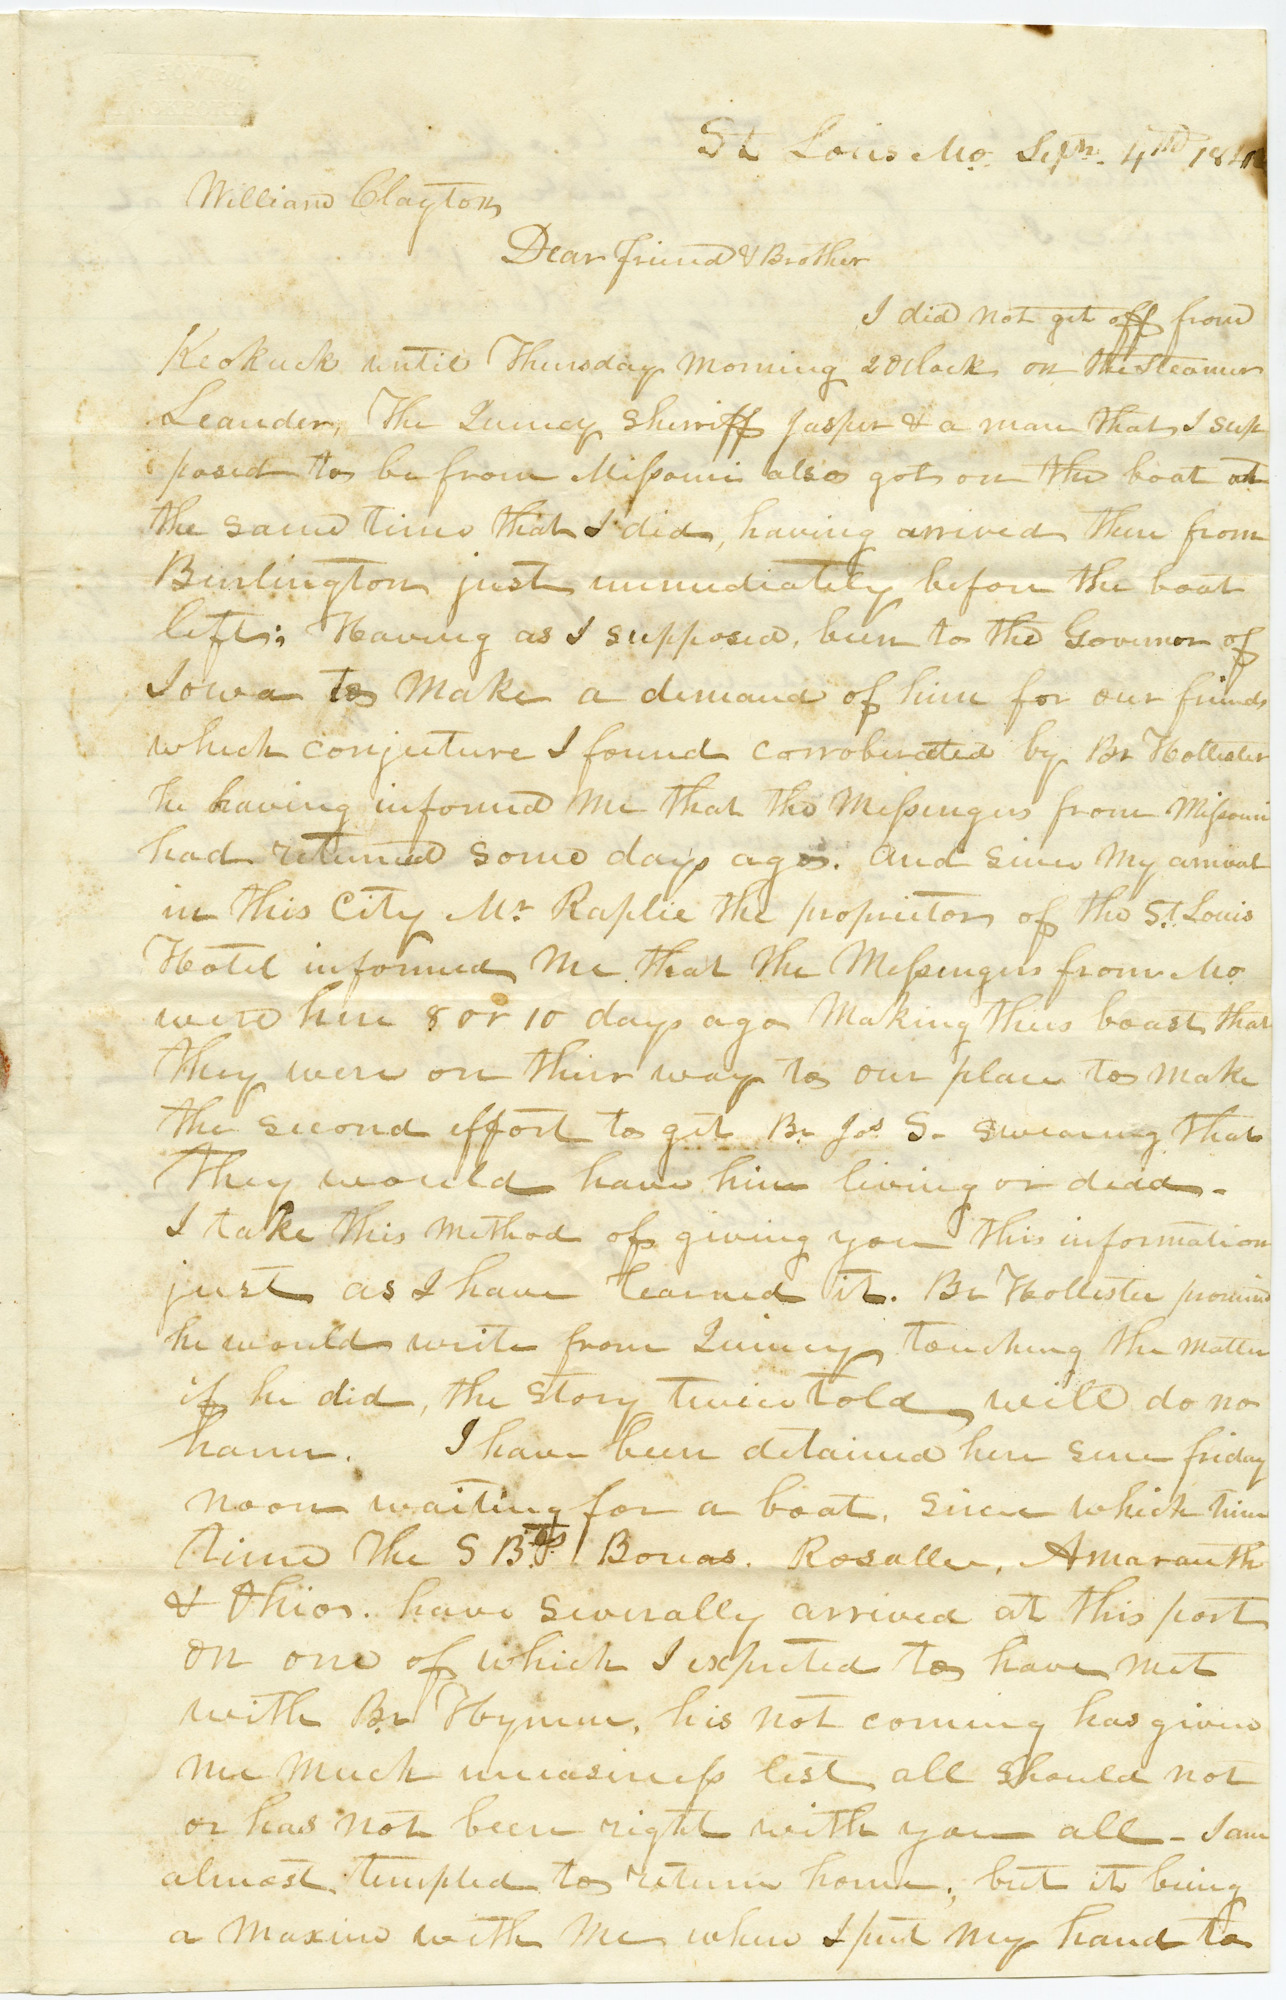 St Louis Mo. Sept. 4th 184
William Clayton
Dear friend & Brother
I did not get off from
Keokuck until Thursday morning 2 OClock on the Steamer
Leander, The Quincy Sherriff Jasper & a man that I sup
posed to be from Missouri also got on the boat at
the same time that I did, having arrived there from
Burlington just immediately before the boat
left; Having as I supposed, been to the Governor of
Iowa to make a demand of him for our friends
which conjuture I found corroberated by Br Hollister
he having informed me that the Messengers from Missouri
had returned some days ago. and since my arrival
in this City Mr Raplie the proprietor of the St. Louis
Hotel informed me that the Messengers from Mo
were here 8 or 10 days ago making thier boast that
they were on thier way to our place to make
the second effort to get Br Jos S. swearing that
They would have him living or dead.-
I take this method of giving you this information
just as I have learned it. Br Hollister promised
he would write from Quincy touching the matter
if he did, the story twice told will do no
harm. I have been detained here since friday
noon waiting for a boat. since which time
time the S Bts Boreas. Rosallee, Amaranth
& Ohio. have severally arrived at this port
on one of which I expected to have met
with Br Hymn, his not coming has given
me much uneasiness lest all should not
or has not been right with you all - I am
almost tempted to return home, but it being
a maxim with me when I put my hand to